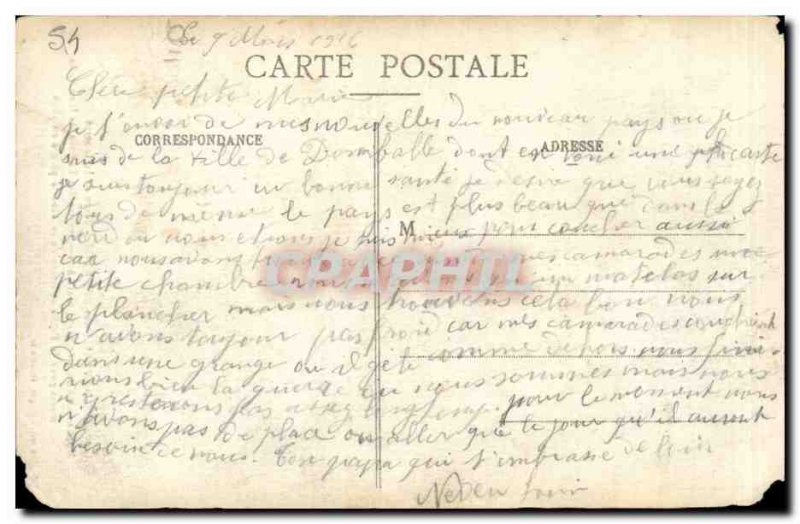 54
Le 9 Mars 1916
CARTE POSTALE
Chère petite Marie
je t'envoi de mes nouvelles du nouveau pays ou je
CORRESPONDANCE
ADRESSE
suis de la ville de Domballe dont est une carte
je suis toujour en bonne santé je desire que vous soyez
tous de même le pays est plus beau que dans la
ou nous etions je suis M ieux pour coucher aussi
car nous avons mes camarades une
petite chambre nous matelas sur
le plancher mais nous trouvons cela bon nous
n'avons toujour pas froid car mes camarades couchent
dans une grange ou il gele comme dehors nous
rions bien la guerre ou nous sommes mais nous
n'y resterons pas assez longtemp. pour le moment nous
n'avons pas de place ou aller que le jour qu'il auront
besoin de nous. Ton papa qui t'embrasse de loin
CPAPHIL